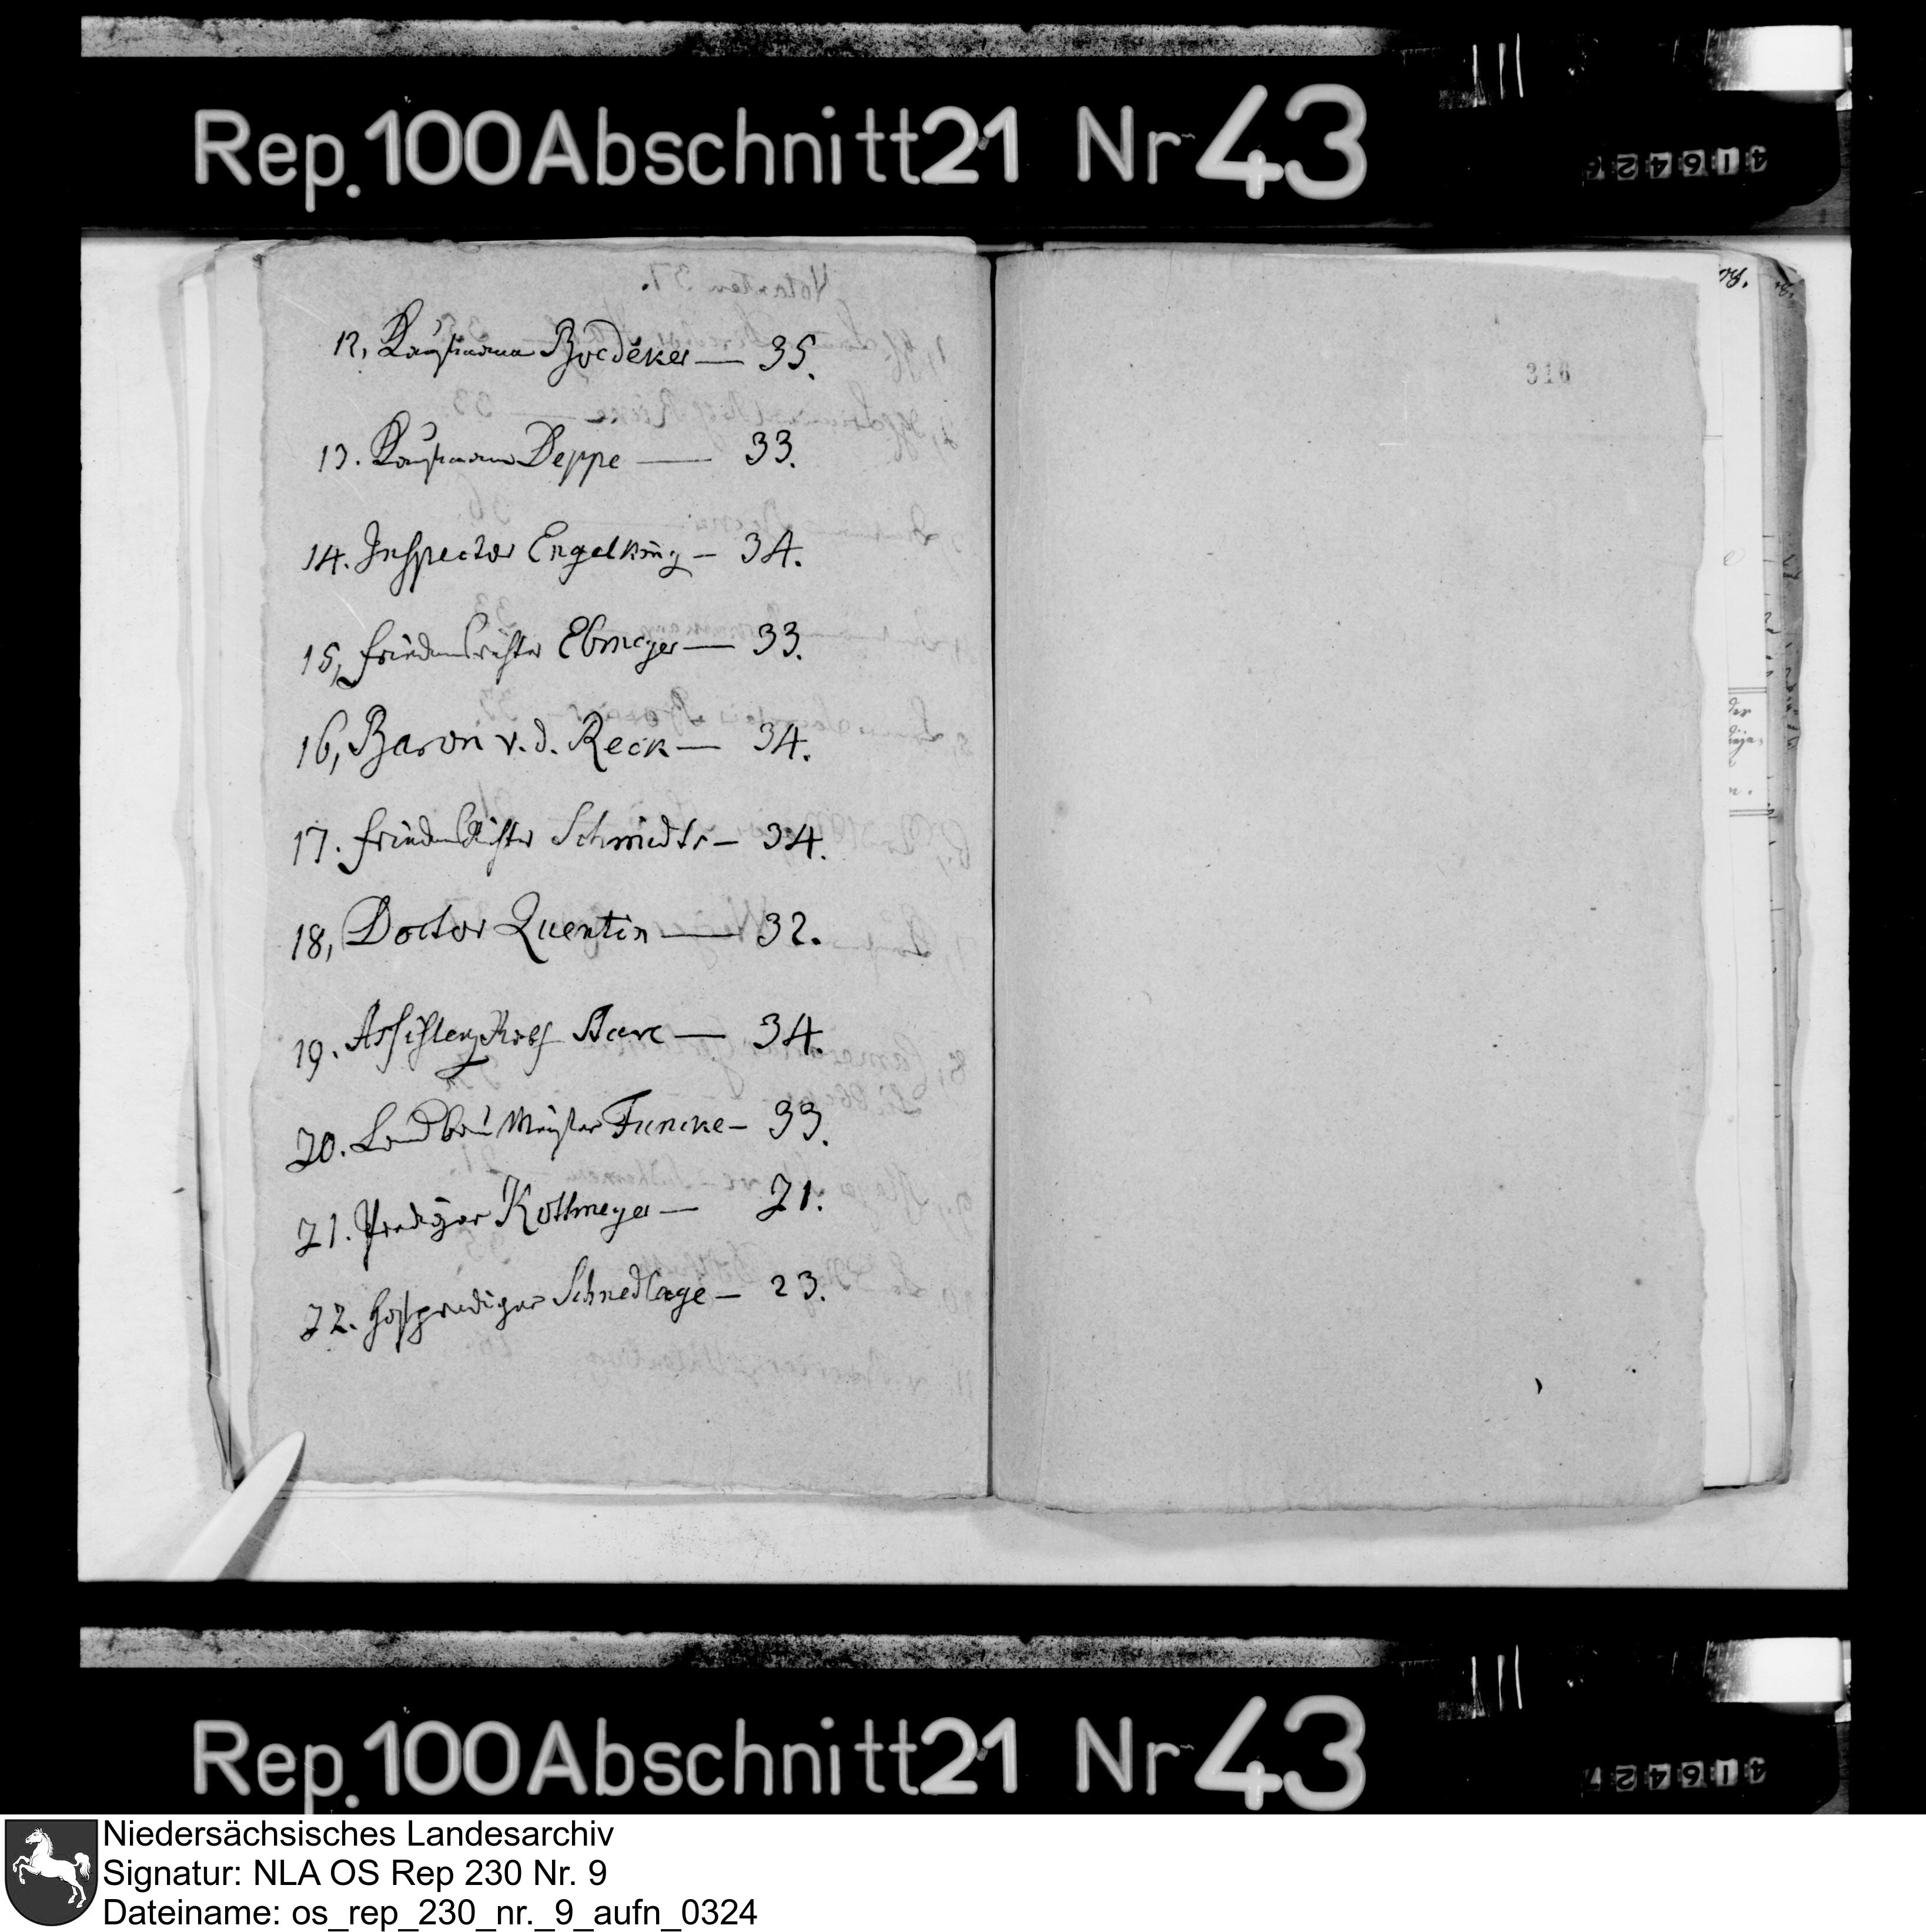 Rep. 100 Abschnitt 21 Nr 43
12, Kaufmann Boedeker — 35.
13. Kaufmann Deppe — 33.
14. Inspector Engelking — 34.
15, Friedensrichter Ebmeyer — 33.
16, Baron v. d. Reck — 34.
17. Friedensrichter Schmidts — 34.
18, Doctor Quentin — 32.
19. Assistenz Rath — 34.
20. Land bau Meister Funcke — 33.
21. Prediger Kottmeyer — 21.
22. Hofprediger Schnedlage — 23.
316
Rep. 100 Abschnitt 21 Nr 43
Niedersächsisches Landesarchiv
Signatur: NLA OS Rep 230 Nr. 9
Dateiname: os_rep_230_nr._9_aufn_0324